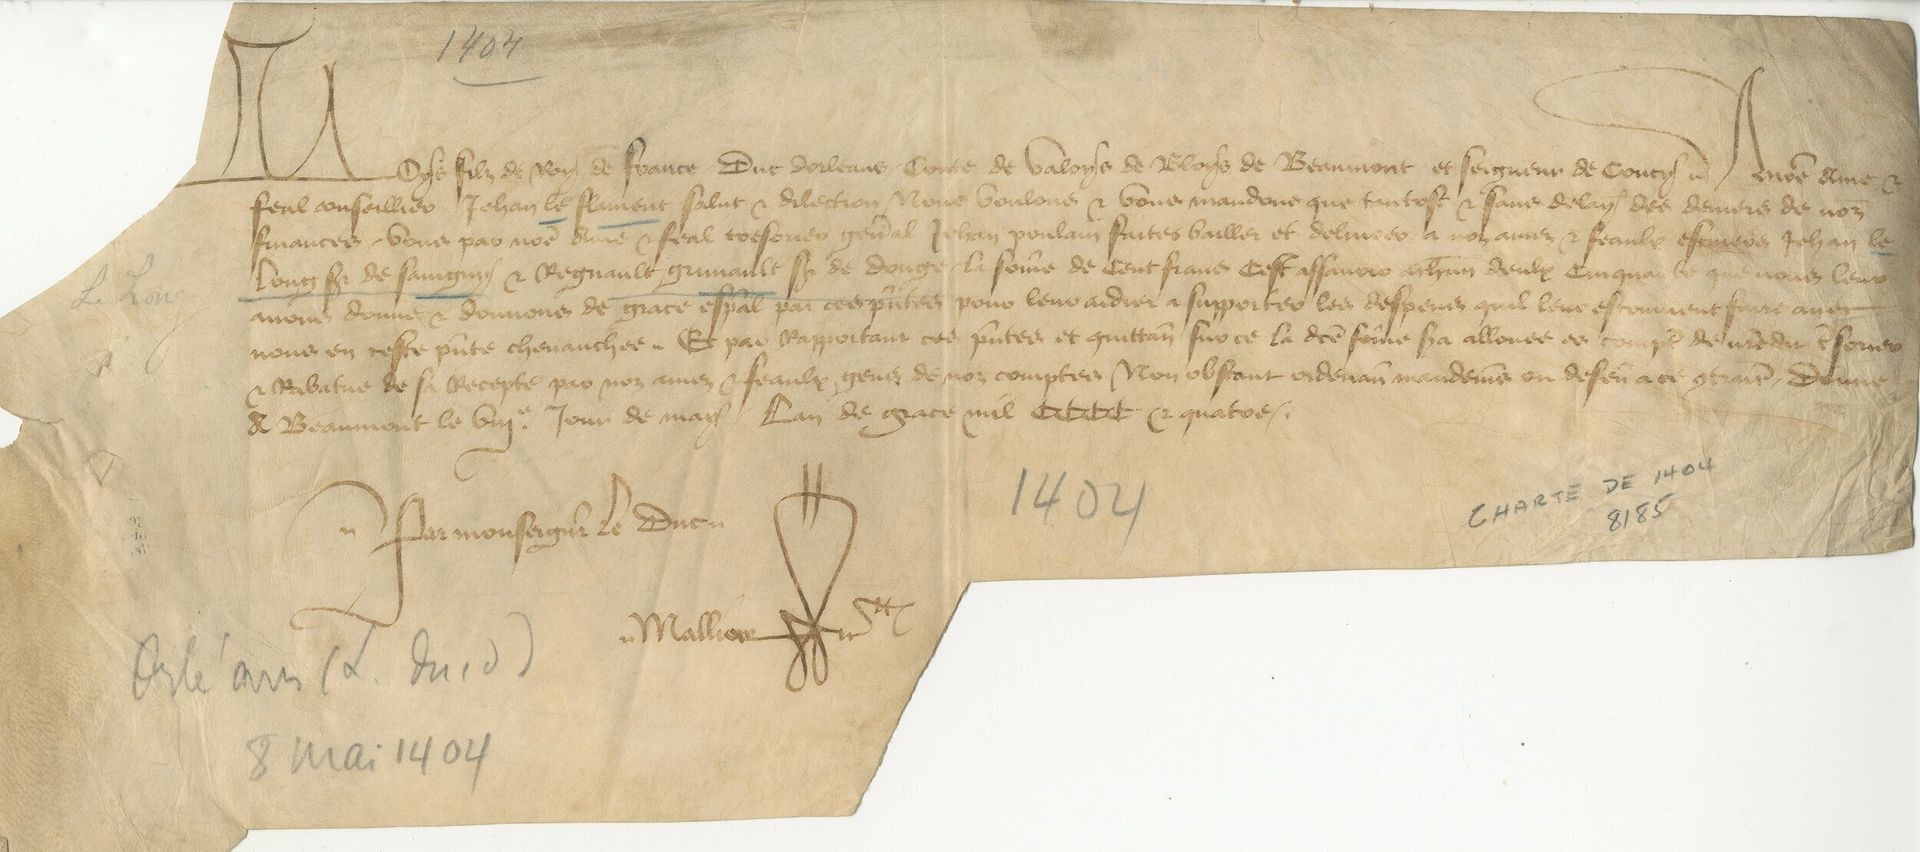 1404
Loys filz de Roy de france Duc dorleans Conte de Valoys de Bloys de Beaumont et seigneur de Coucy A nre ame &
feal conseillier Jehan le flament salut & dilection Nous voulons & vous mandons que tantost & sans delay des deniers de noz
finances vous par nre ame & feal tresorier gñal Jehan poulain faites bailler et delivrer a noz amez & feaulx escuiers Jehan le
Long sr de & Regnault sr de donge la sõme de Cent frans Cest assavoir a chũn deulx Cinquante que nous leur
avons donne & donnons de grace espãl par ces pñtes pour leur aidier a supporter les despens quil leur faire avec
nous en ceste pñte chevauchee Et par Rapportant ces pñtes et quittañ sur ce la dce sõme sa allouee es compt de nre dit tsorier
& Rabatue de sa Recepte par noz amez & feaulx gens de noz comptes Non obstant ordenañ mandemẽs ou defeñ a ce ꝯtraires Donne
A Beaumont le viij.e Jour de may Lan de grace mil CCCC & quatre
L. Long
Par monseigñr le Duc
1404
CHARTE DE 1404
8185
Orléans (L. duc d')
8 mai 1404